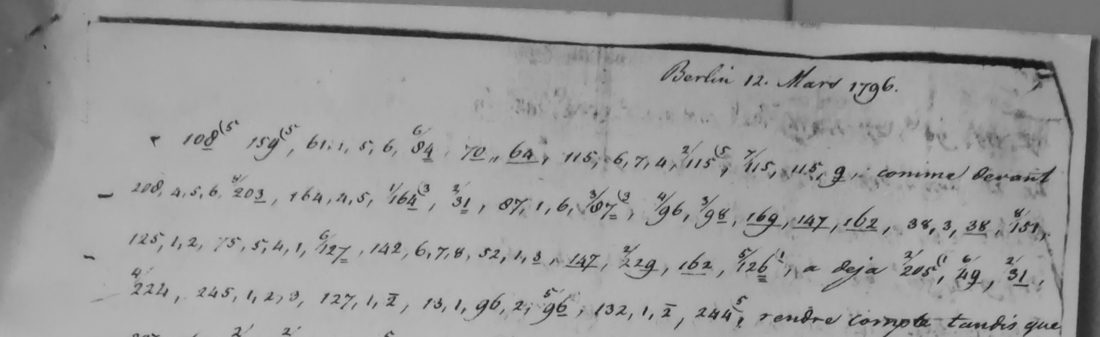 Berlin 12. Mars 1796.
108(5 159(5, 61,1,5,6, 6/84, 70,, 64, 115, 6,7,4, 2/115(5, 7/115, 115, 9, comme devant
208, 4,5,6, 203, 164, 4,5, 1/164(3, 2/31, 87, 1, 6, 3/87(3, 4/96, 3/98, 169, 147, 162, 38, 3, 38, 8/151,
125, 1, 2, 75, 5, 4, 1, 6/127, 142, 6,7,8, 52, 1, 3, 147, 2/229, 162, 5/126(1, a deja 2/205(1, 6/49, 2/31,
4/224, 245, 1, 2, 3, 127, 1, 2, 13, 1, 96, 2, 5/96, 132, 1, 2, 244(5, rendre compte tandis que